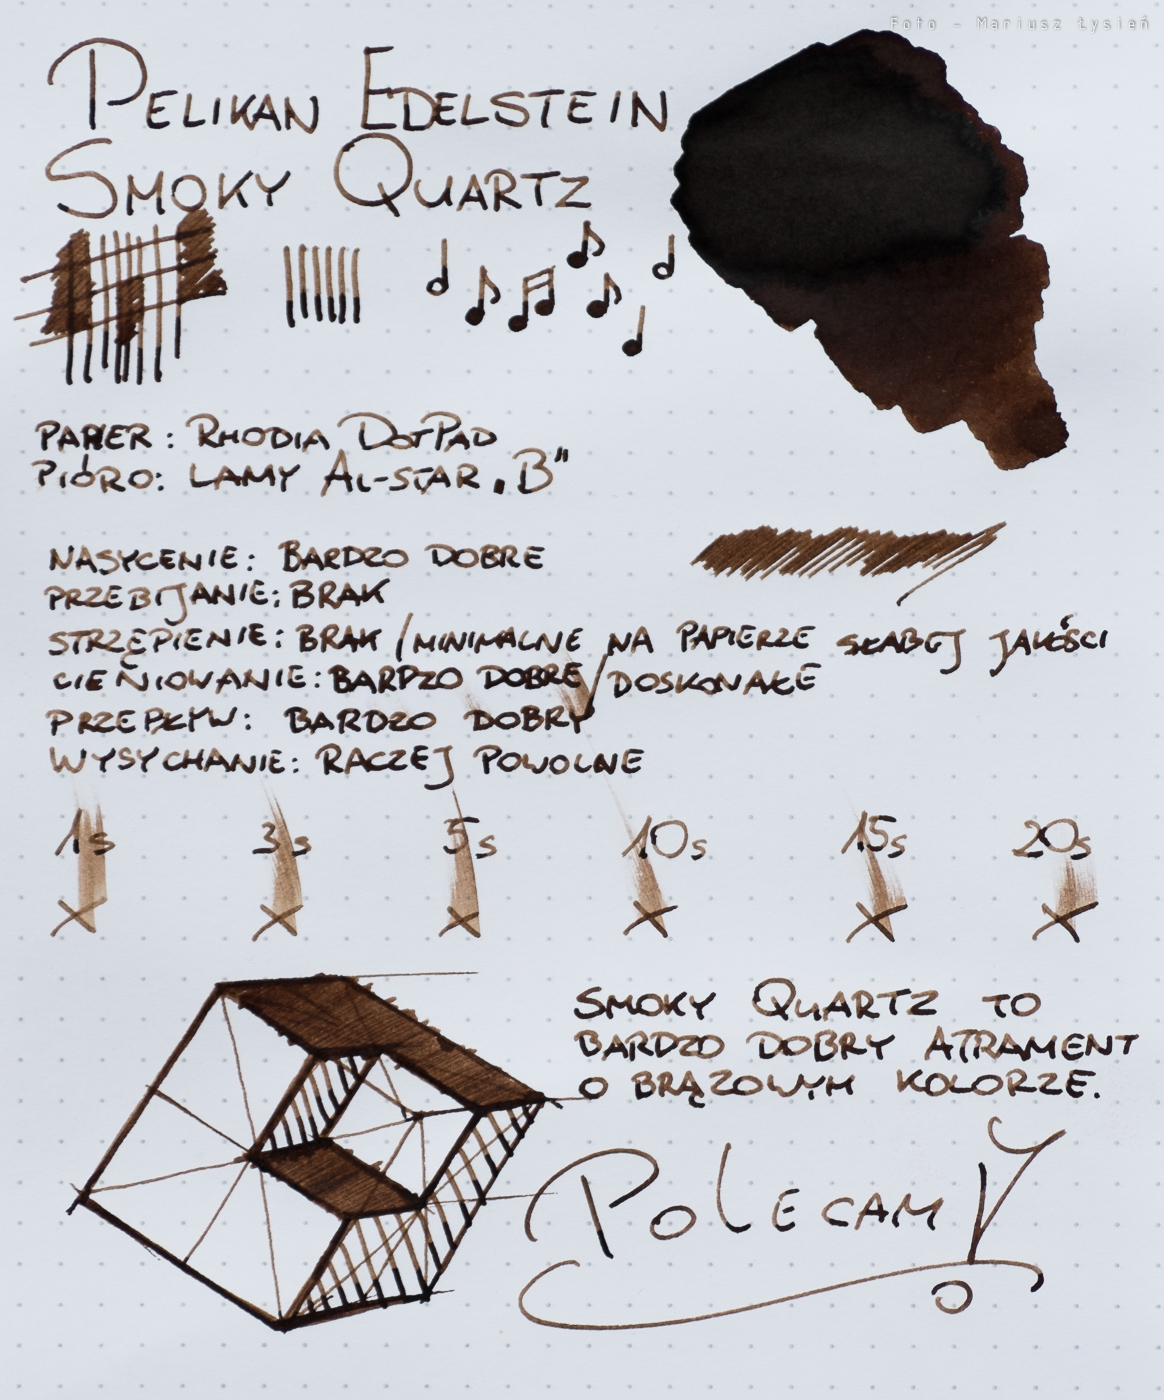 Foto - Mariusz Łysień
PELIKAN EDELSTEIN
SMOKY QUARTZ
PAPIER: RHODIA DOTPAD
PIÓRO: LAMY AL-STAR „B"
NASYCENIE: BARDZO DOBRE
PRZEBIJANIE: BRAK
STRZĘPIENIE: BRAK/MINIMALNE NA PAPIERZE SŁABEJ JAKOŚCI
CIENIOWANIE: BARDZO DOBRE/DOSKONAŁE
PRZEPŁYW: BARDZO DOBRY
WYSYCHANIE: RACZEJ POWOLNE
1s 3s 5s 10s 15s 20s
SMOKY QUARTZ TO
BARDZO DOBRY ATRAMENT
O BRĄZOWYM KOLORZE.
POLECAM!